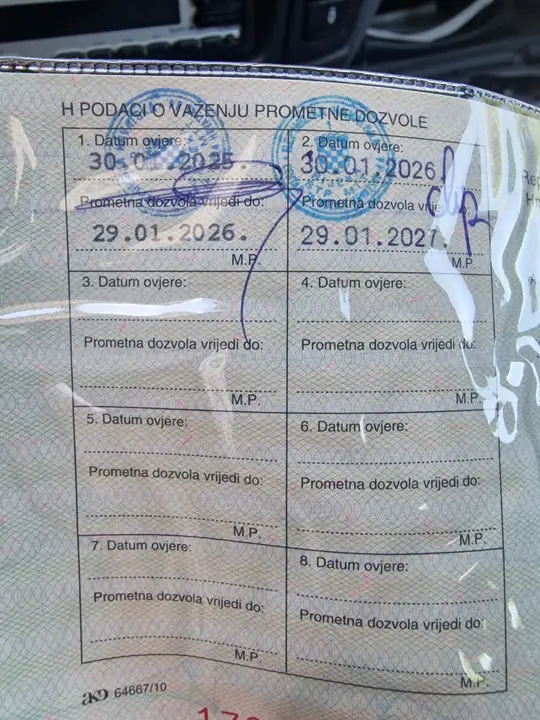 H PODACI O VAŽENJU PROMETNE DOZVOLE
1. Datum ovjere:
30.01.2025.
Prometna dozvola vrijedi do:
29.01.2026.
M.P.
2. Datum ovjere:
30.01.2026.
Prometna dozvola vrije
29.01.2027.
M.P.
3. Datum ovjere:
Prometna dozvola vrijedi do:
M.P.
4. Datum ovjere:
Prometna dozvola vrijedi do:
M.P.
5. Datum ovjere:
Prometna dozvola vrijedi do:
M.P.
6. Datum ovjere:
Prometna dozvola vrijedi do:
M.P.
7. Datum ovjere:
Prometna dozvola vrijedi do:
M.P.
8. Datum ovjere:
Prometna dozvola vrijedi do:
M.P.
AKD 64667/10